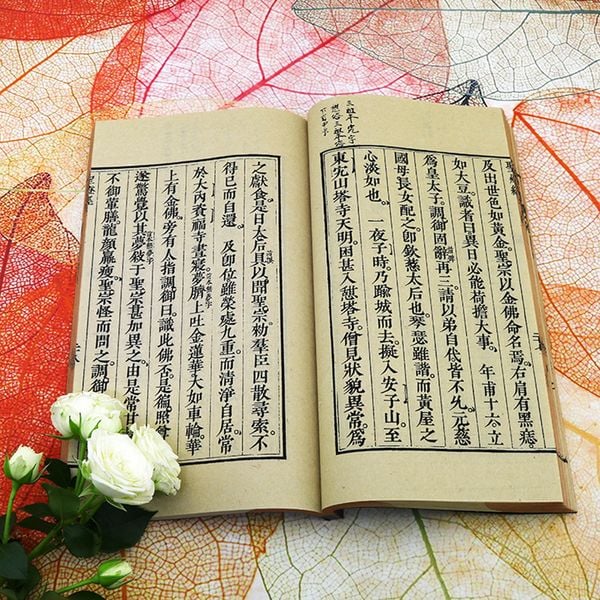 及出世色如黃金。聖宗以金佛命名焉。右肩有黑痣。
如大豆。識者曰異日必能荷擔大事。年甫十六。立
爲皇太子。調御固辭再三。請以弟自代皆不允。元慈
國母長女配之。卽欽慈太后也。琴瑟雖諧而黃屋之
心淡如也。一夜子時。乃踰城而去。擬入安子山。至
東宄山塔寺天明。困甚入憩塔寺。僧見狀貌異常。爲
之厭食。是日太后具以聞聖宗。勑羣臣四散尋索。不
得已而自還。及卽位雖榮處九重。而清淨自居。常
於大內資福寺晝寢。夢臍上吐金蓮華大如車輪。華
上有金佛。旁有人指調御曰。識此佛否。是徧照
遂驚覺。以其夢敍于聖宗。甚加異之。由是常甘
不御葷膳。龍顏羸瘦。聖宗怪而問之。調御